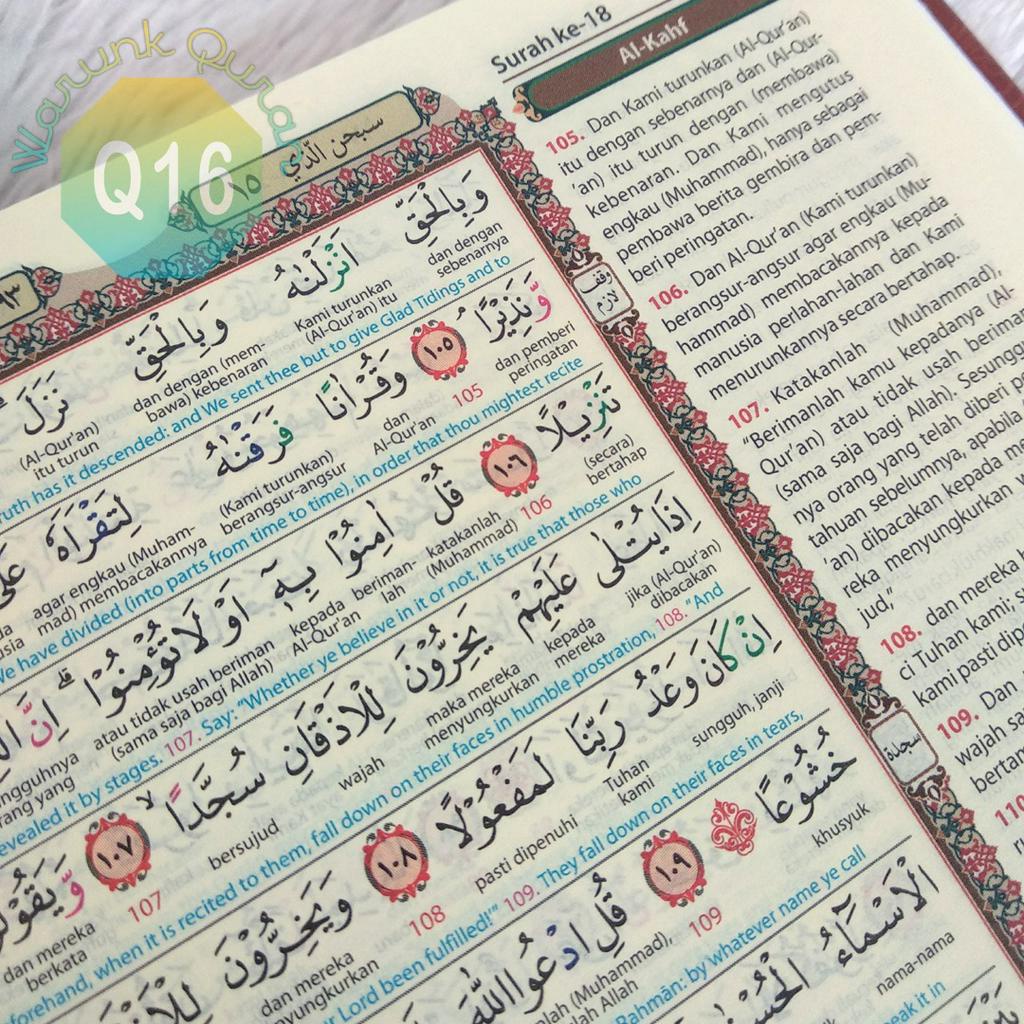 Warunk Quran
Q16
Surah ke-18
Al-Kahf
سبحن الذي ١٥
وَبِالْحَقِّ اَنْزَلْنٰهُ وَبِالْحَقِّ نَزَلَ
dan dengan sebenarnya
Kami turunkan (Al-Qur'an) itu
dengan (mem-bawa) kebenaran
(Al-Qur'an) itu turun
ruth has it descended: and We sent thee but to give Glad Tidings and to
وَّنَذِيْرًا ١٠٥ وَقُرْاٰنًا فَرَقْنٰهُ لِتَقْرَاَهٗ
dan pemberi peringatan
105
dan Al-Qur'an
(Kami turunkan) berangsur-angsur
agar engkau (Muham-mad) membacakannya
We have divided (into parts from time to time), in order that thou mightest recite
تَنْزِيْلًا ١٠٦ قُلْ اٰمِنُوْا بِهٖٓ اَوْ لَا تُؤْمِنُوْاۗ اِنَّ
(secara) bertahap
106
katakanlah (Muhammad)
beriman-lah
kepada Al-Qur'an
atau tidak usah beriman (sama saja bagi Allah)
evealed it by stages. 107. Say: "Whether ye believe in it or not, it is true that those who
اِذَا يُتْلٰى عَلَيْهِمْ يَخِرُّوْنَ لِلْاَذْقَانِ سُجَّدًا ١٠٧ وَّيَقُوْلُ
jika (Al-Qur'an) dibacakan
kepada mereka
maka mereka menyungkurkan
wajah
bersujud
107
dan mereka berkata
forehand, when it is recited to them, fall down on their faces in humble prostration, 108. "And
اِنْ كَانَ وَعْدُ رَبِّنَا لَمَفْعُوْلًا ١٠٨ وَيَخِرُّوْنَ
sungguh, janji
Tuhan kami
pasti dipenuhi
108
dan mereka
nyungkurkan
r Lord been fulfilled!" 109. They fall down on their faces in tears,
خُشُوْعًا ١٠٩ قُلِ ادْعُوا اللّٰهَ
khusyuk
109
(Muhammad),
Allah
Rahmān: by whatever name ye call
الْاَسْمَاۤءُ
nama-nama
eak it in
وقف لازم
سجدة
105. Dan Kami turunkan (Al-Qur'an)
itu dengan sebenarnya dan (Al-Qur-
'an) itu turun dengan (membawa)
kebenaran. Dan Kami mengutus
engkau (Muhammad), hanya sebagai
pembawa berita gembira dan pem-
beri peringatan.
106. Dan Al-Qur'an (Kami turunkan)
berangsur-angsur agar engkau (Mu-
hammad) membacakannya kepada
manusia perlahan-lahan dan Kami
menurunkannya secara bertahap.
107. Katakanlah (Muhammad),
"Berimanlah kamu kepadanya (Al-
Qur'an) atau tidak usah beriman
(sama saja bagi Allah). Sesungg
nya orang yang telah diberi pe
tahuan sebelumnya, apabila
'an) dibacakan kepada me
reka menyungkurkan w
jud,"
108. dan mereka b
ci Tuhan kami; s
kami pasti dipe
109. Dan
wajah sa
bertam
110